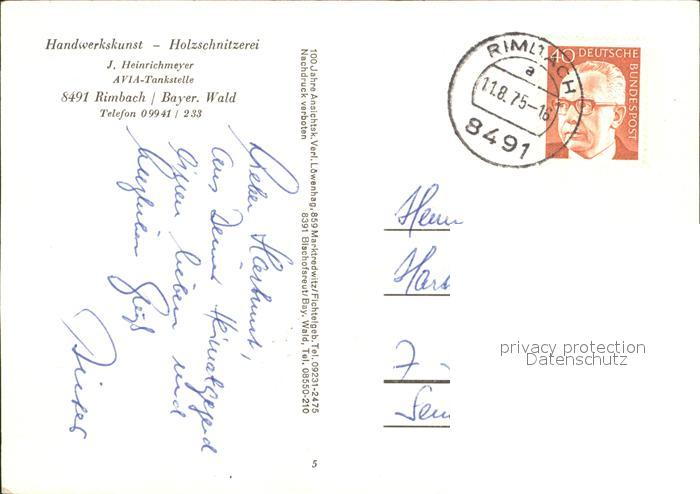 Handwerkskunst – Holzschnitzerei
J. Heinrichmeyer
AVIA-Tankstelle
8491 Rimbach / Bayer. Wald
Telefon 09941 / 233
Lieber Hartmut,
aus Deiner Heimatgegend
lieben und
Dieter
100 Jahre Ansichtsk. Verl. Löwenhag, 859 Marktredwitz/Fichtelgeb. Tel. 09231-2475
Nachdruck verboten 8391 Bischofsreut/Bay. Wald, Tel. 08550-210
5
RIMBACH
a
11.8.75-16
8491
40 DEUTSCHE
BUNDESPOST
Herrn
Hart
privacy protection
Datenschutz